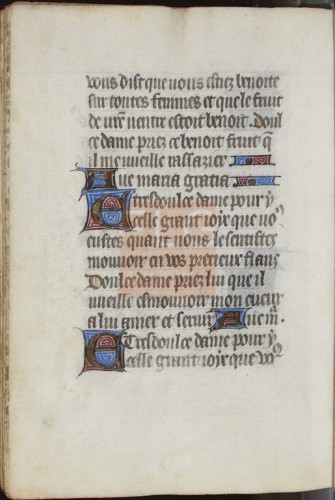 vous dist que vous estiez benoite
sur toutes femmes et que le fruit
de vr̄e ventre estoit benoit. Doul
ce dame priez ce benoit fruit q̄
il me vueille rassazier.
Aue maria gratia
E tresdoulce dame pour y
celle grant ioye que vo⁹
eustes quant vous le sentistes
mouuoir en vos precieux flans
Doulce dame priez lui que il
vueille esmouuoir mon cueur
a lui amer et seruir Aue m̄.
E tresdoulce dame pour y
celle grant ioye que vo⁹